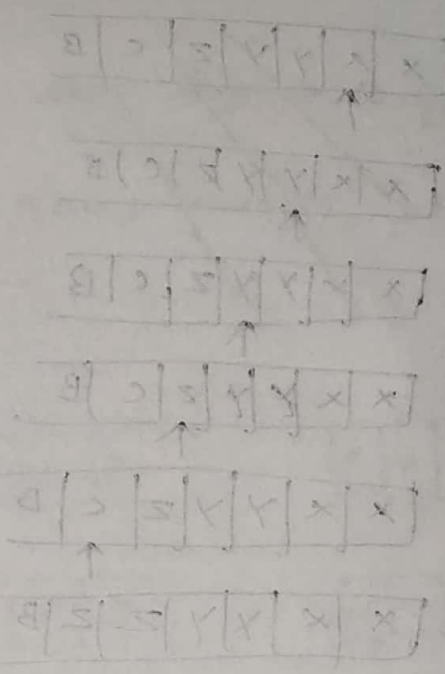 X Y Y Z C B
X X Y Y Z C B
X X Y Y Z C B
X X Y Y Z C B
X X Y Y Z C B
X X Y Y Z Z B